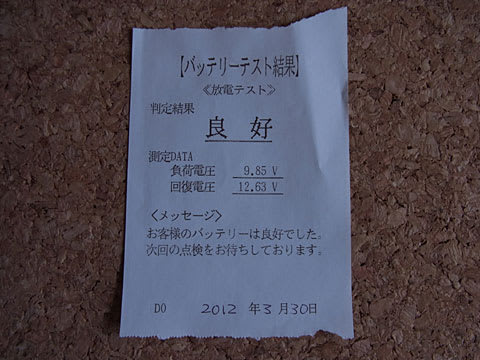 【バッテリーテスト結果】
≪放電テスト≫
判定結果
良 好
測定DATA
負荷電圧 9.85 V
回復電圧 12.63 V
<メッセージ>
お客様のバッテリーは良好でした。
次回の点検をお待ちしております。
D0 2012 年 3 月 30日